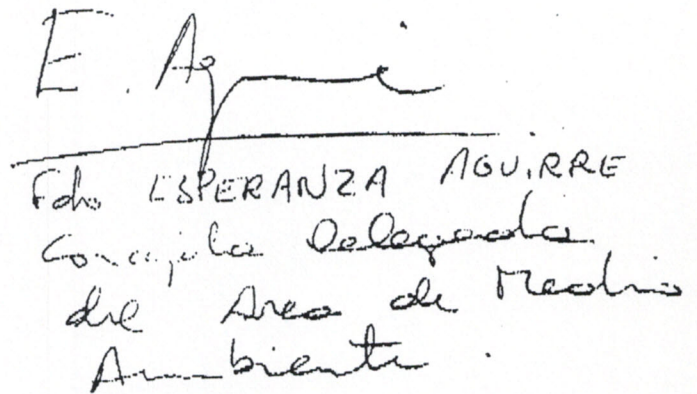 E. Agui
Fdo ESPERANZA AGUIRRE
Concejala Delegada
del Area de Medio
Ambiente.